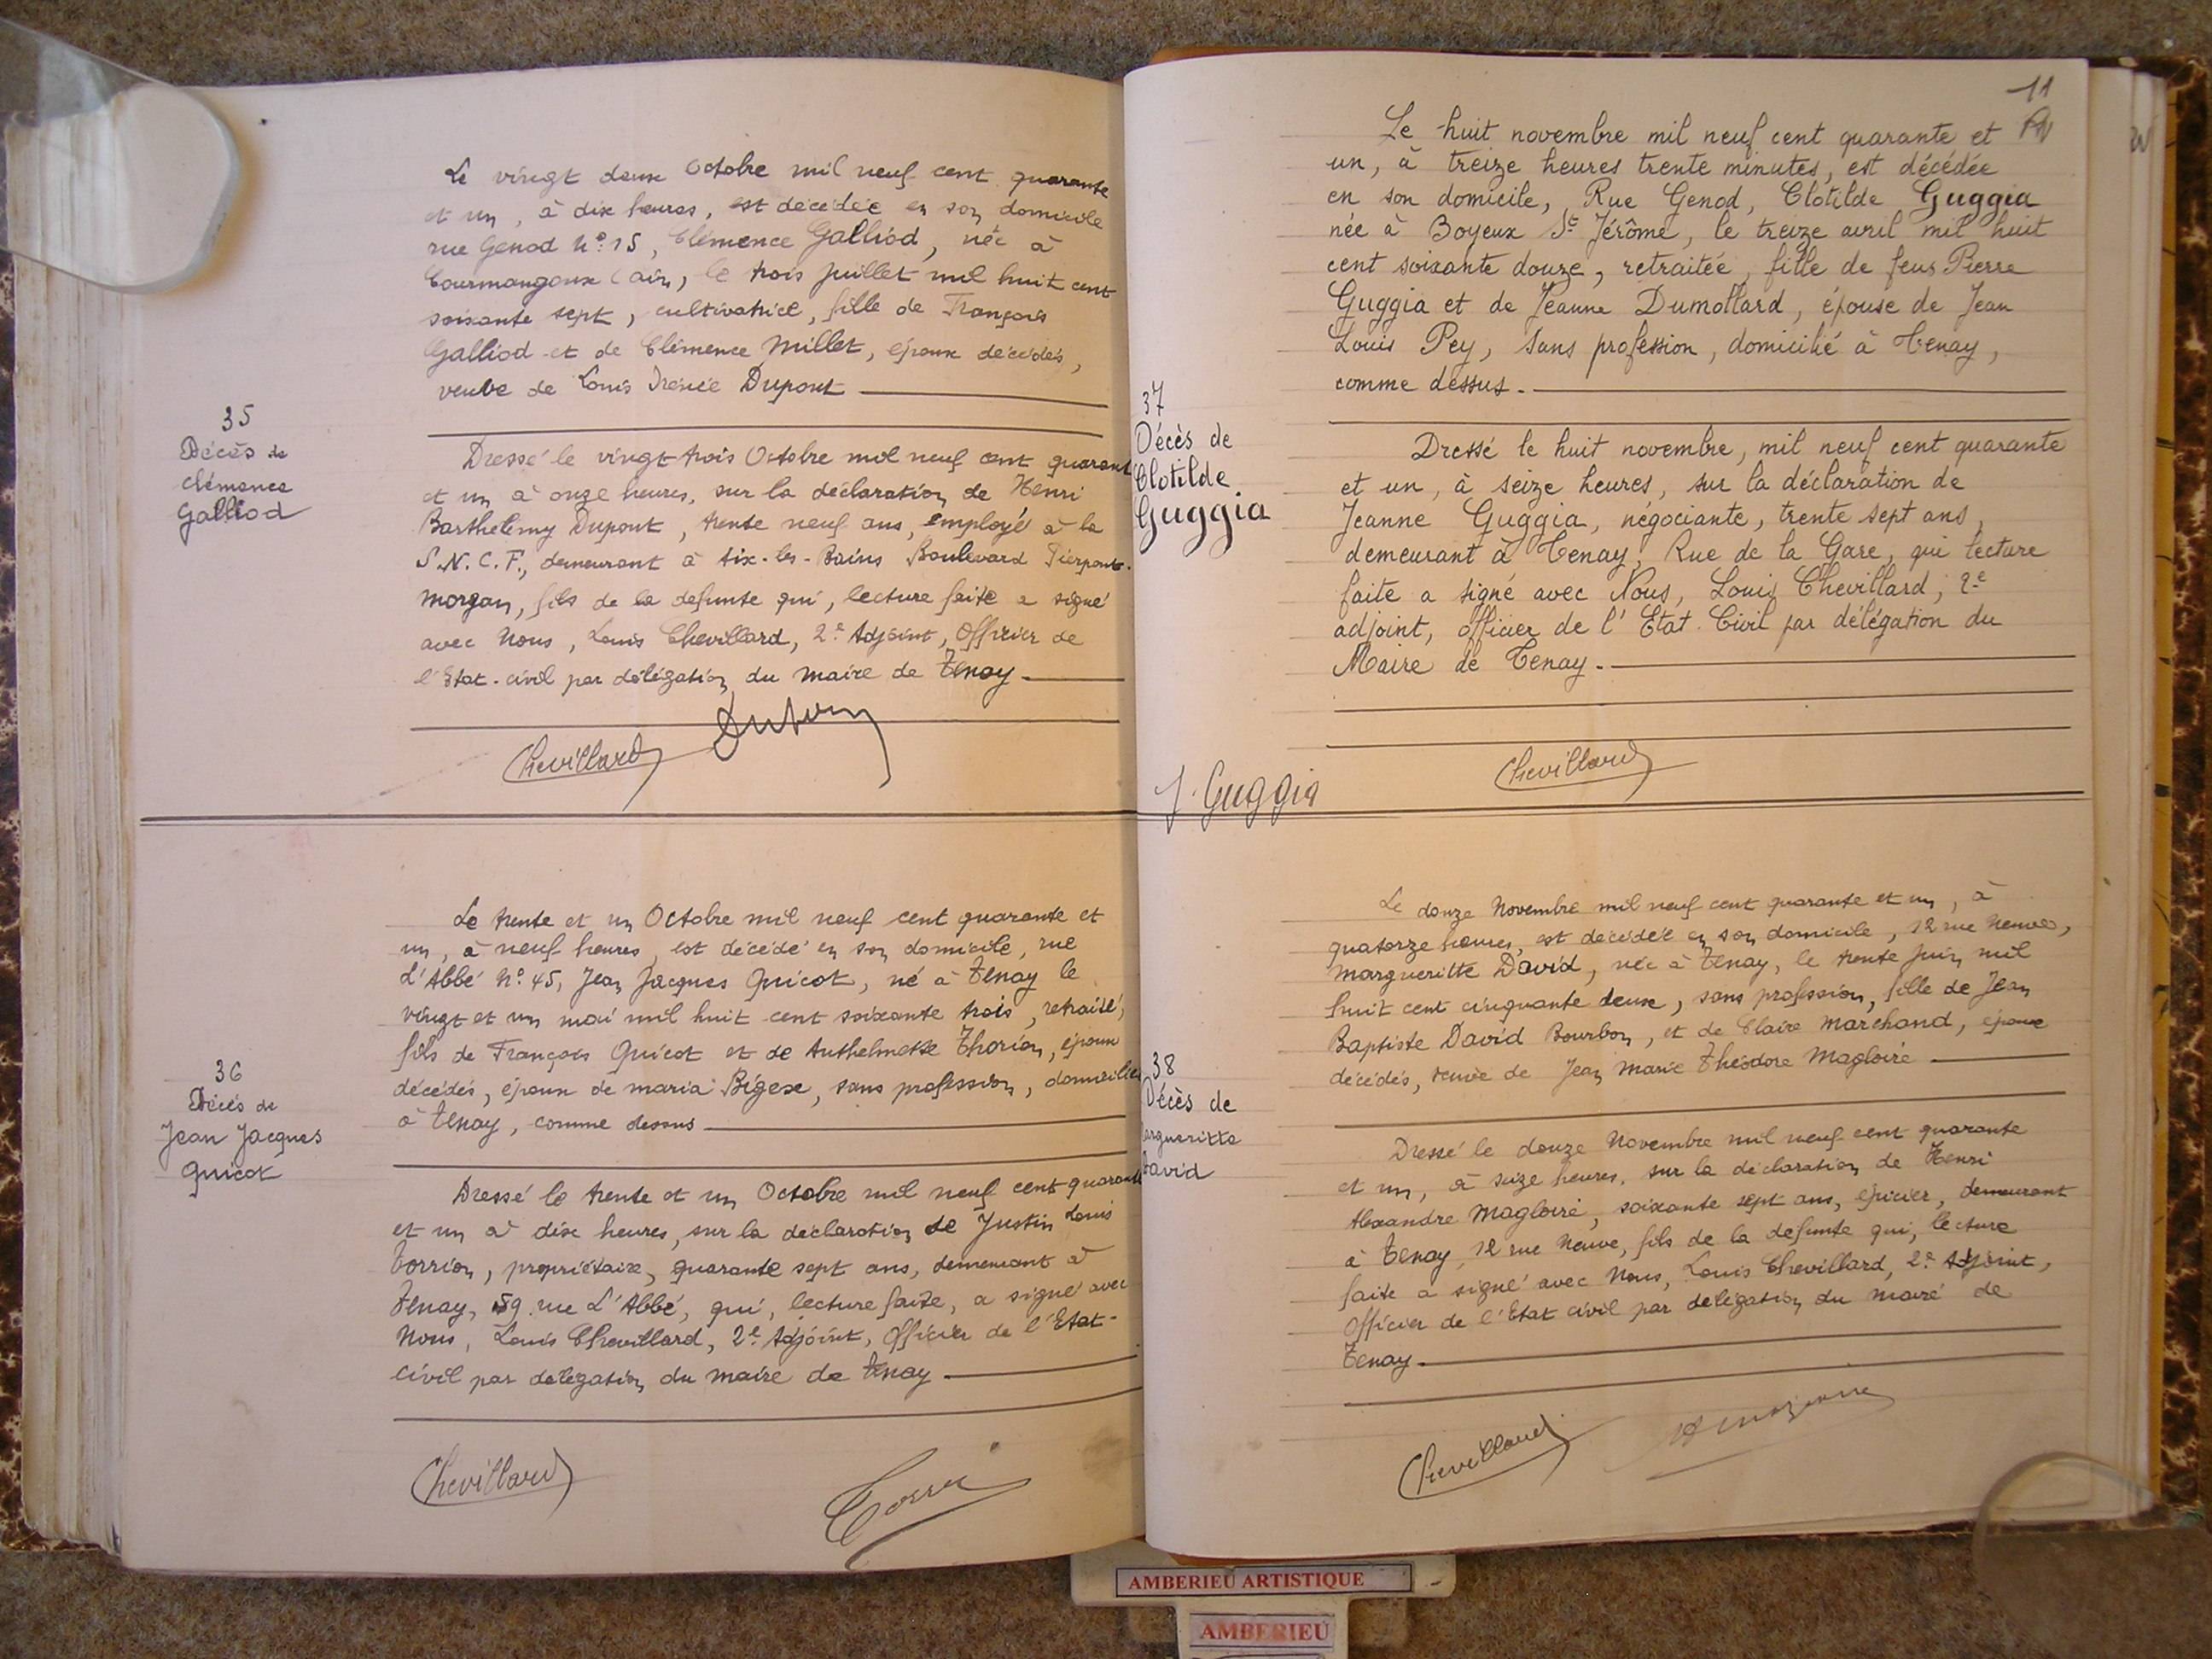 Le vingt deux Octobre mil neuf cent quarante
et un, à dix heures, est décédée en son domicile
rue Genod N° 15, Clémence Galliod, née à
Courmangoux (Ain), le trois Juillet mil huit cent
soixante sept, cultivatrice, fille de François
Galliod et de Clémence Millet, époux décédés,
veuve de Louis Irénée Dupont
35
Décès de
Clémence
Galliod
Dressé le vingt-trois Octobre mil neuf cent quarant
et un à onze heures, sur la déclaration de Henri
Barthélemy Dupont, trente neuf ans, employé à la
S.N.C.F., demeurant à Aix-les-Bains Boulevard Pierpont-
Morgan, fils de la défunte qui, lecture faite a signé
avec Nous, Louis Chevillard, 2e Adjoint, Officier de
l'Etat-civil par délégation du Maire de Tenay
Chevillard
Le trente et un Octobre mil neuf cent quarante et
un, à neuf heures, est décédé en son domicile, rue
L'Abbé N° 45, Jean Jacques Quicot, né à Tenay le
vingt et un mai mil huit cent soixante trois, retraité,
fils de François Quicot et de Anthelmette Thorion, époux
décédés, époux de Maria Bigex, sans profession, domiciliés
à Tenay, comme dessus
36
Décès de
Jean Jacques
Quicot
Dressé le trente et un Octobre mil neuf cent quarante
et un à dix heures, sur la déclaration de Justin Louis
Torrion, propriétaire, quarante sept ans, demeurant à
Tenay, 59 rue L'Abbé, qui, lecture faite, a signé avec
Nous, Louis Chevillard, 2e Adjoint, Officier de l'Etat-
civil par délégation du Maire de Tenay
Chevillard
11
Le huit novembre mil neuf cent quarante et
un, à treize heures trente minutes, est décédée
en son domicile, Rue Genod, Clotilde Guggia
née à Boyeux St Jérôme, le treize avril mil huit
cent soixante douze, retraitée, fille de feus Pierre
Guggia et de Jeanne Dumollard, épouse de Jean
Louis Pey, sans profession, domicilié à Tenay,
comme dessus.
37
Décès de
Clotilde
Guggia
Dressé le huit novembre, mil neuf cent quarante
et un, à seize heures, sur la déclaration de
Jeanne Guggia, négociante, trente sept ans,
demeurant à Tenay, Rue de la Gare, qui lecture
faite a signé avec Nous, Louis Chevillard, 2e
adjoint, officier de l'Etat Civil par délégation du
Maire de Tenay.
Chevillard
J. Guggia
Le douze Novembre mil neuf cent quarante et un, à
quatorze heures, est décédée en son domicile, 12 rue Neuve,
Margueritte David, née à Tenay, le trente Juin mil
huit cent cinquante deux, sans profession, fille de Jean
Baptiste David Bourbon, et de Claire Marchand, époux
décédés, veuve de Jean Marie Théodore Magloire
38
Décès de
argueritte
David
Dressé le douze Novembre mil neuf cent quarante
et un, à seize heures, sur la déclaration de Henri
Alexandre Magloire, soixante sept ans, épicier, demeurant
à Tenay, 12 rue Neuve, fils de la défunte qui, lecture
faite a signé avec Nous, Louis Chevillard, 2e Adjoint,
Officier de l'Etat civil par délégation du Maire de
Tenay.
Chevillard
AMBERIEU ARTISTIQUE
AMBERIEU